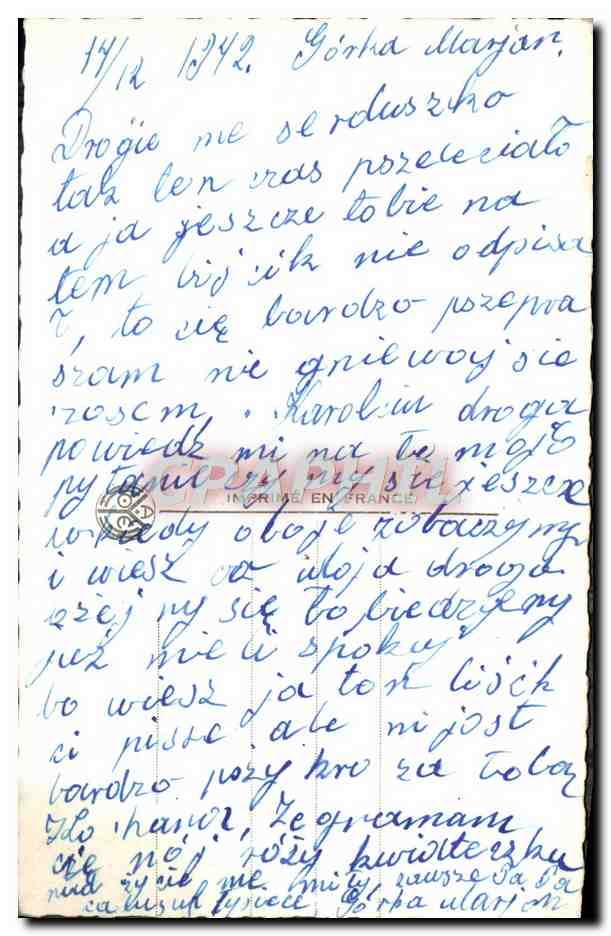 14/12 1942. Górka Marjan.
Drogie me serduszko
tak ten czas pszeleciało
a ja jeszcze tobie na
tem liśćik nie odpisa
ł, to się bardzo pszepra
szam nie gniewaj sie
rosem. Karolciu droga
powiedz mi na to moje
pytanie czy my sie jeszcze
IMPRIMÉ EN FRANCE
wkiedy oboje zobaczymy
i wiesz co moja droga
eżej my się to biedzięmy
już mieli spokuj
bo wiesz ja ton liśćik
ci pisze ale mi jest
bardzo pszykro za tobą
Kochana, Żegnamam
cię mój róży kwiateczku
nad życie me miły, zawsze
całusuf tysiące Górka Marjan